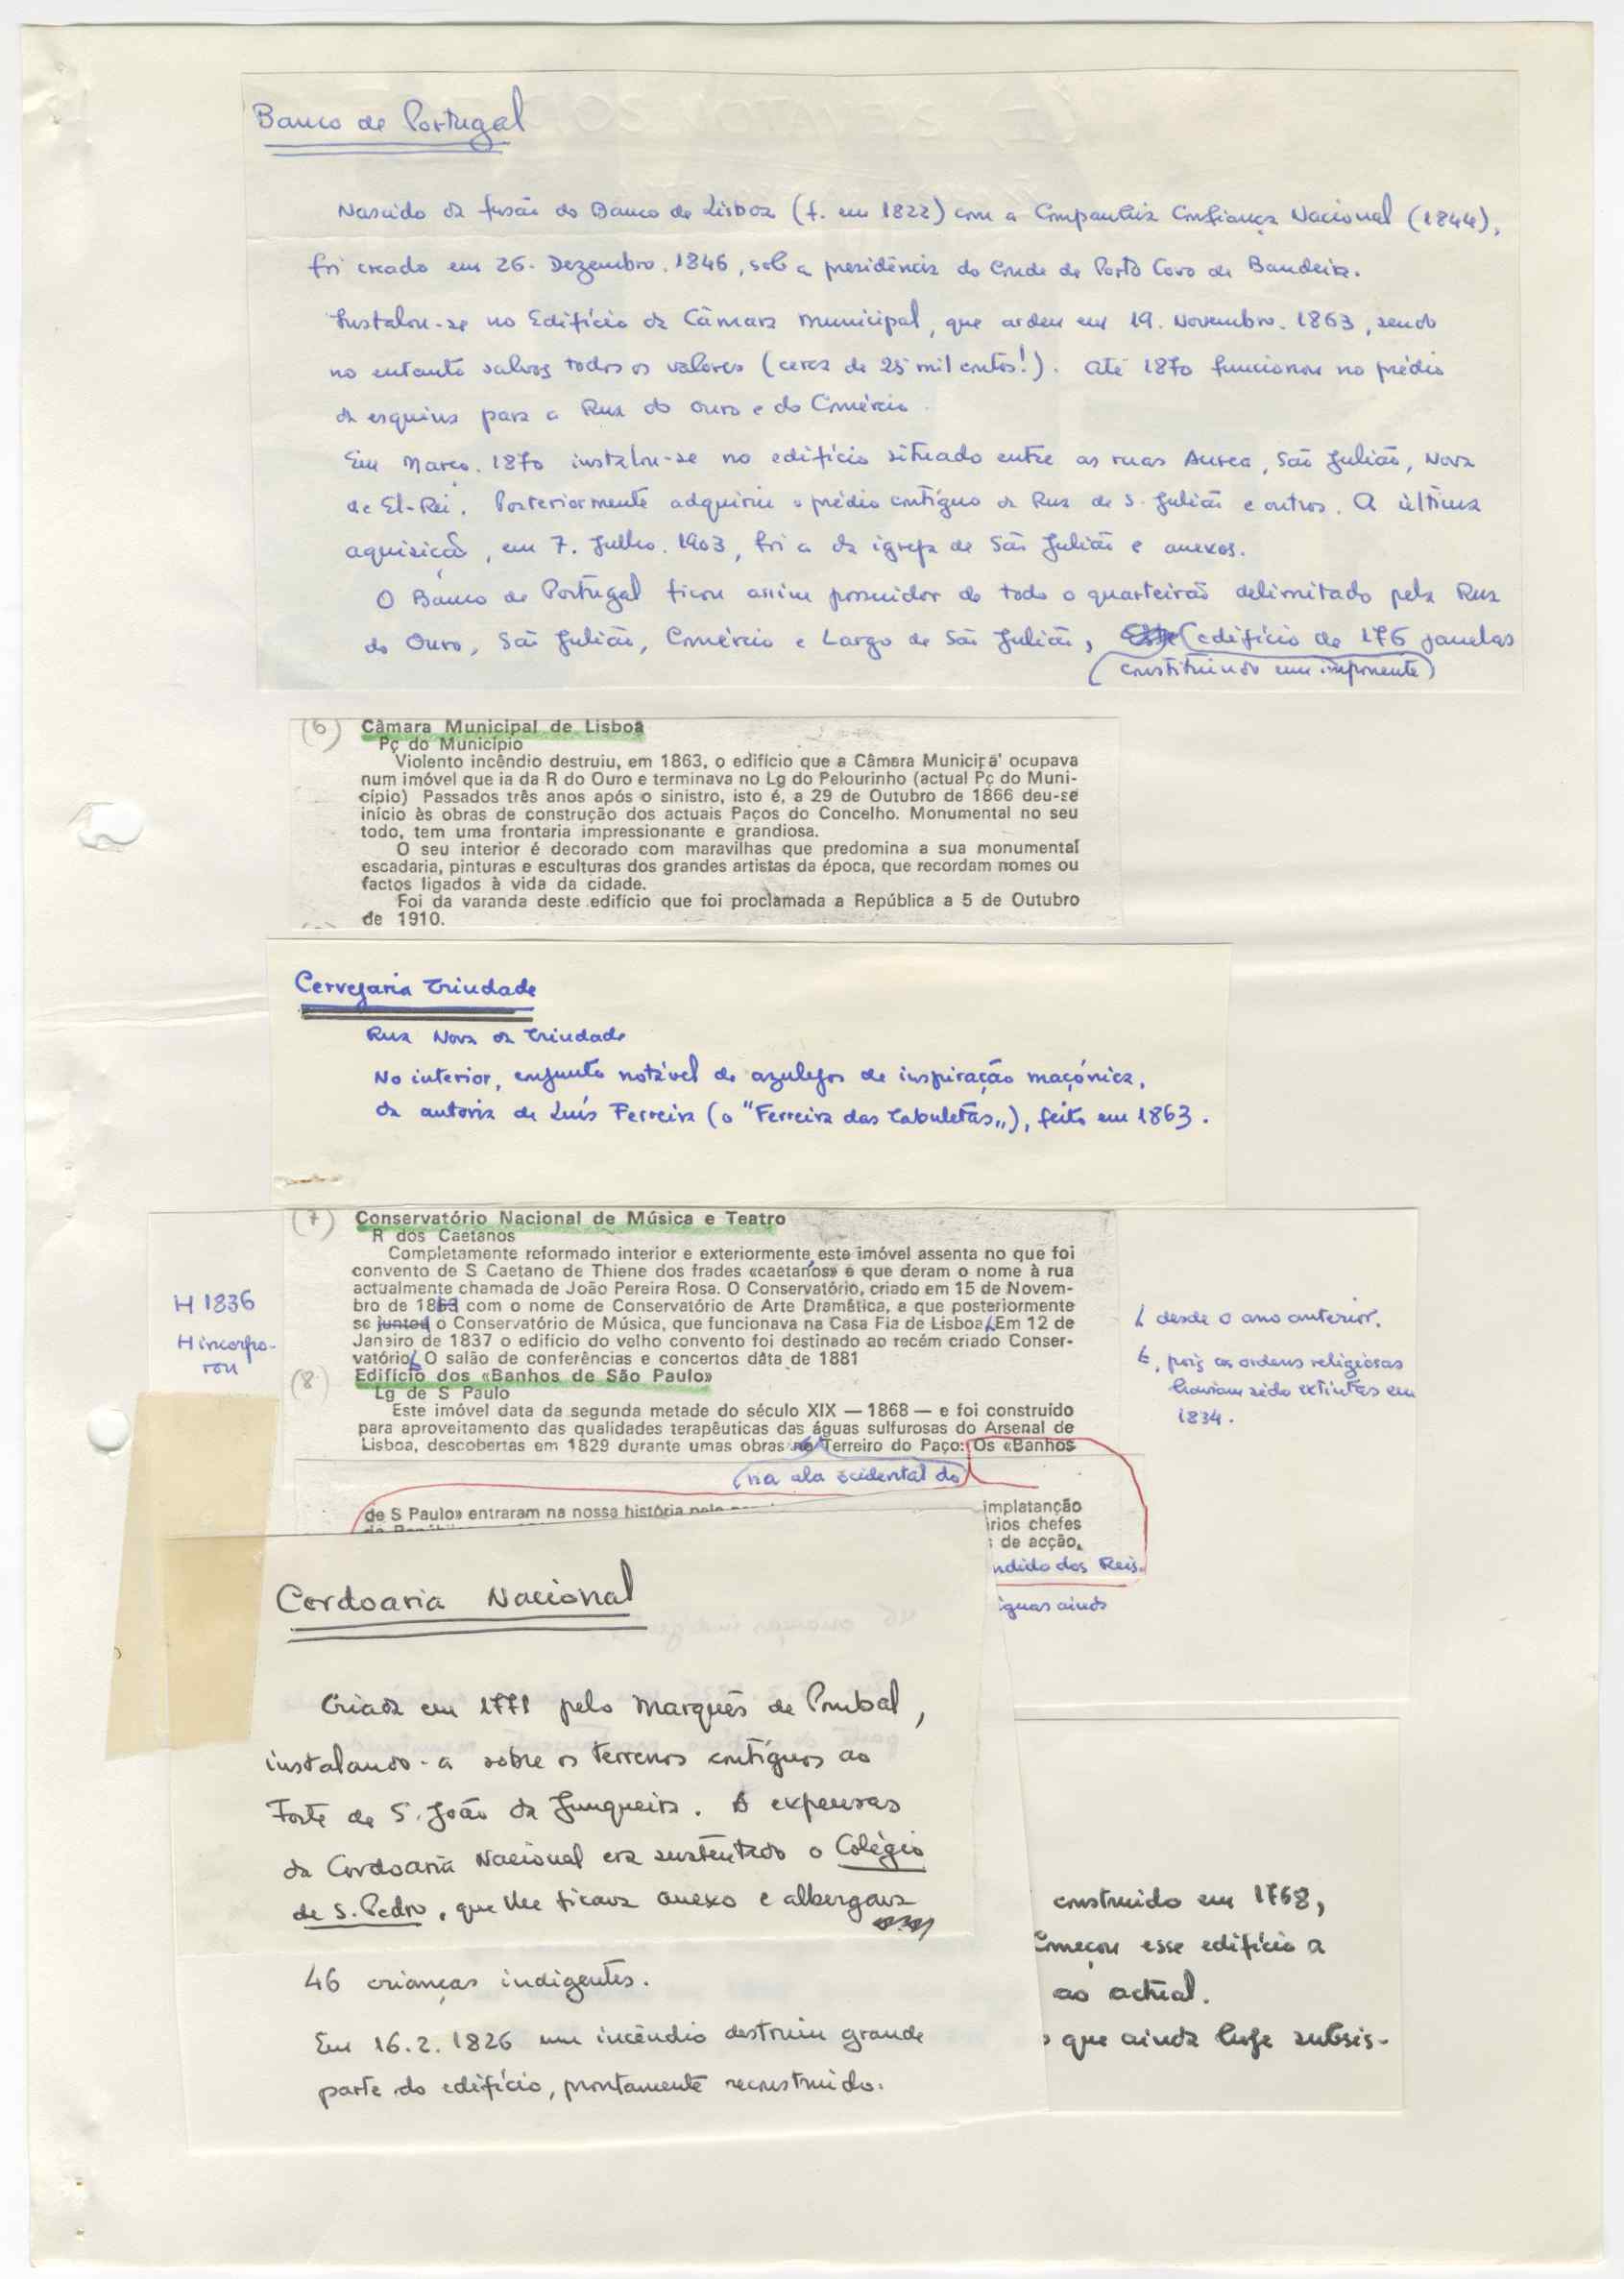 Banco de Portugal
Nascido da fusão do Banco de Lisboa (f. em 1822) com a Companhia Confiança Nacional (1844),
foi creado em 26. Dezembro. 1846, sob a presidência do Conde de Porto Covo da Bandeira.
Instalou-se no Edifício da Câmara Municipal, que ardeu em 19. Novembro. 1863, sendo
no entanto salvos todos os valores (cerca de 25 mil contos!). Até 1870 funcionou no prédio
da esquina para a Rua do Ouro e do Comércio.
Em Março. 1870 instalou-se no edifício situado entre as ruas Aurea, São Julião, Nova
de El-Rei. Posteriormente adquiriu o prédio contíguo da Rua de S. Julião e outros. A última
aquisição, em 7. Julho. 1903, foi a da igreja de São Julião e anexos.
O Banco de Portugal ficou assim possuidor de todo o quarteirão delimitado pela Rua
do Ouro, São Julião, Comércio e Largo de São Julião, (edifício de 176 janelas
(constituindo um imponente)
(6) Câmara Municipal de Lisboa
Pç do Município
Violento incêndio destruiu, em 1863, o edifício que a Câmara Municipa' ocupava
num imóvel que ia da R do Ouro e terminava no Lg do Pelourinho (actual Pç do Muni-
cípio) Passados três anos após o sinistro, isto é, a 29 de Outubro de 1866 deu-se
início às obras de construção dos actuais Paços do Concelho. Monumental no seu
todo, tem uma frontaria impressionante e grandiosa.
O seu interior é decorado com maravilhas que predomina a sua monumental
escadaria, pinturas e esculturas dos grandes artistas da época, que recordam nomes ou
factos ligados à vida da cidade.
Foi da varanda deste edifício que foi proclamada a República a 5 de Outubro
de 1910.
Cervejaria Trindade
Rua Nova da Trindade
No interior, conjunto notável de azulejos de inspiração maçónica,
da autoria de Luís Ferreira (o "Ferreira das Tabuletas"), feito em 1863.
(7) Conservatório Nacional de Música e Teatro
R dos Caetanos
Completamente reformado interior e exteriormente, este imóvel assenta no que foi
convento de S Caetano de Thiene dos frades «caetanos» e que deram o nome à rua
actualmente chamada de João Pereira Rosa. O Conservatório, criado em 15 de Novem-
bro de 1863 com o nome de Conservatório de Arte Dramática, a que posteriormente
se juntou o Conservatório de Música, que funcionava na Casa Pia de Lisboa. Em 12 de
Janeiro de 1837 o edifício do velho convento foi destinado ao recém criado Conser-
vatório. O salão de conferências e concertos dàta de 1881
H 1836
H incorpo-
rou
desde o ano anterior.
, pois as ordens religiosas
haviam sido extintas em
1834.
(8) Edifício dos «Banhos de São Paulo»
Lg de S Paulo
Este imóvel data da segunda metade do século XIX — 1868 — e foi construído
para aproveitamento das qualidades terapêuticas das águas sulfurosas do Arsenal de
Lisboa, descobertas em 1829 durante umas obras no Terreiro do Paço. Os «Banhos
(na ala ocidental do)
de S Paulo» entraram na nossa história
implatanção
irios chefes
de acção,
ndido dos Reis.
iguas ainda
Cordoaria Nacional
Criada em 1771 pelo Marquês de Pombal,
instalando-a sobre os terrenos contíguos ao
Forte de S. João da Junqueira. A expensas
da Cordoaria Nacional era sustentado o Colégio
de S. Pedro, que lhe ficava anexo e albergava
46 crianças indigentes.
Em 16.2.1826 um incêndio destruiu grande
parte do edifício, prontamente reconstruído.
construído em 1768,
Começou esse edifício a
ao actual.
o que ainda hoje subsis-